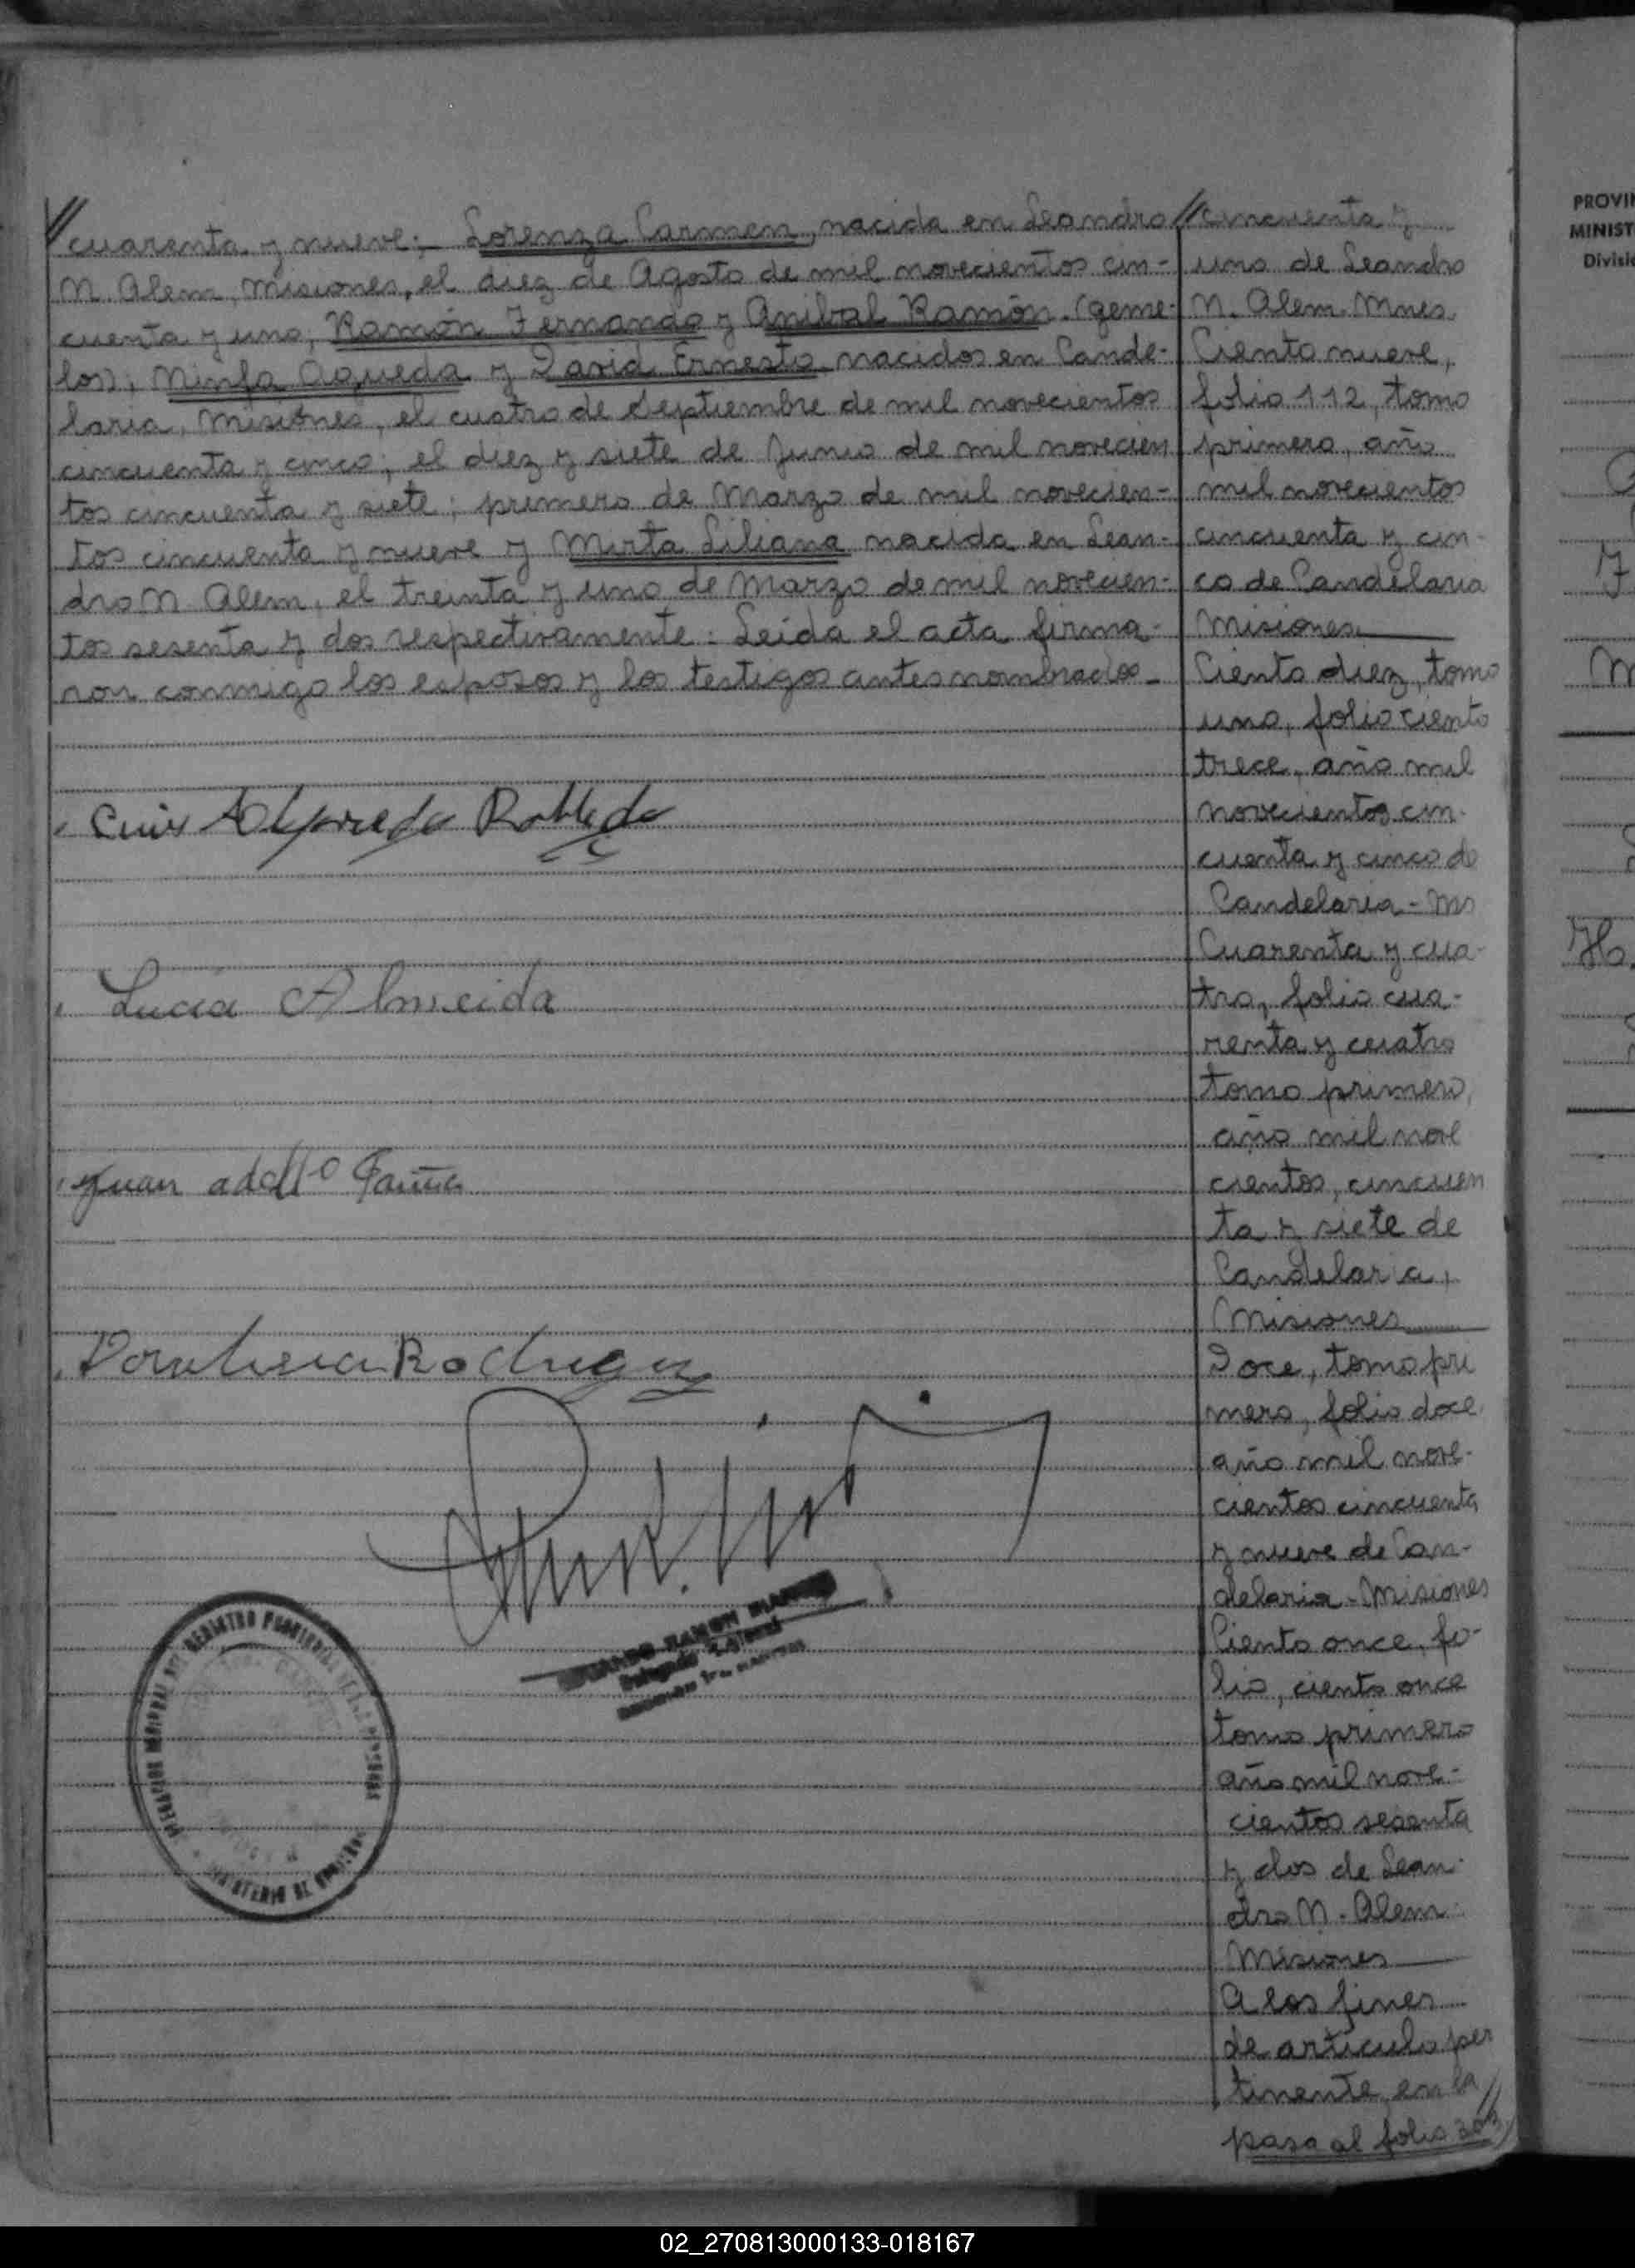 // cuarenta y nueve; Lorenza Carmen, nacida en Leandro
N. Alem, Misiones, el diez de Agosto de mil novecientos cin-
cuenta y uno, Ramón Fernando y Anibal Ramón. (geme-
los); Ninfa Agueda y David Ernesto nacidos en Cande-
laria, Misiones, el cuatro de Septiembre de mil novecientos
cincuenta y cinco; el diez y siete de Junio de mil novecien
tos cincuenta y siete; primero de Marzo de mil novecien-
tos cincuenta y nueve y Mirta Liliana nacida en Lean-
dro N. Alem, el treinta y uno de Marzo de mil novecien-
tos sesenta y dos respectivamente: Leída el acta firma-
ron conmigo los esposos y los testigos antes nombrados_
Luis Alfredo Robledo
Lucia Almeida
Juan adolfo
Rodriguez
RAMON
Delegado
REGISTRO PROVINCIAL DE LAS PERSONAS
MINISTERIO DE
// cincuenta y
uno de Leandro
N. Alem. Mnes.
Ciento nueve,
folio 112, tomo
primero, año
mil novecientos
cincuenta y cin-
co de Candelaria
Misiones
Ciento diez, tomo
uno, folio ciento
trece, año mil
novecientos cin-
cuenta y cinco de
Candelaria - Ms
Cuarenta y cua-
tro, folio cua-
renta y cuatro
tomo primero,
año mil nove
cientos, cincuen
ta y siete de
Candelaria,
Misiones
Doce, tomo pri
mero, folio doce
año mil nove-
cientos cincuenta
y nueve de Can-
delaria - Misiones
Ciento once, fo-
lio, ciento once
tomo primero
año mil nove-
cientos sesenta
y dos de Lean-
dro N. Alem
Misiones
A los fines
de artículo per
tinente en la //
pasa al folio 303
PROVIN
MINIST
Divisió
02_270813000133-018167